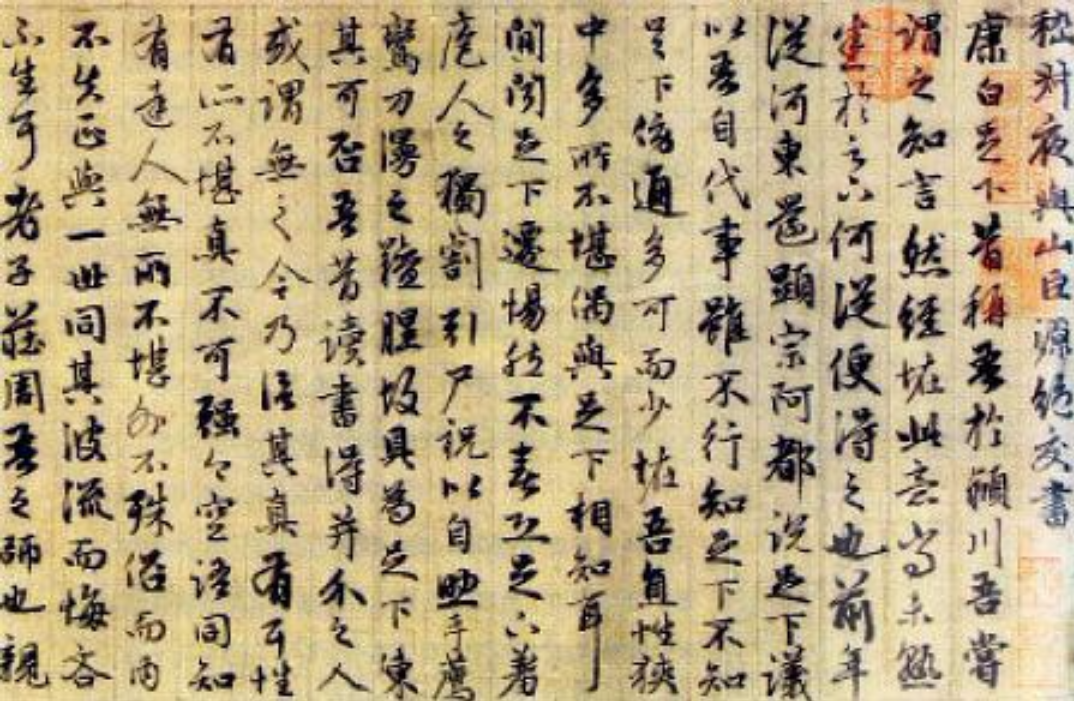 嵇叔夜與山巨源絕交書
康白足下昔稱吾於潁川吾嘗
謂之知言然經怪此意尚未熟
悉於足下何從便得之也前年
從河東還顯宗阿都說足下議
以吾自代事雖不行知足下不知
足下傍通多可而少怪吾直性狹
中多所不堪偶與足下相知耳
間聞足下遷惕然不喜恐足下羞
庖人之獨割引尸祝以自助手薦
鸞刀漫之羶腥故具為足下陳
其可否吾昔讀書得并介之人
或謂無之今乃信其真有耳性
有所不堪真不可強今空語同知
有達人無所不堪外不殊俗而內
不失正與一世同其波流而悔吝
不生耳老子莊周吾之師也親